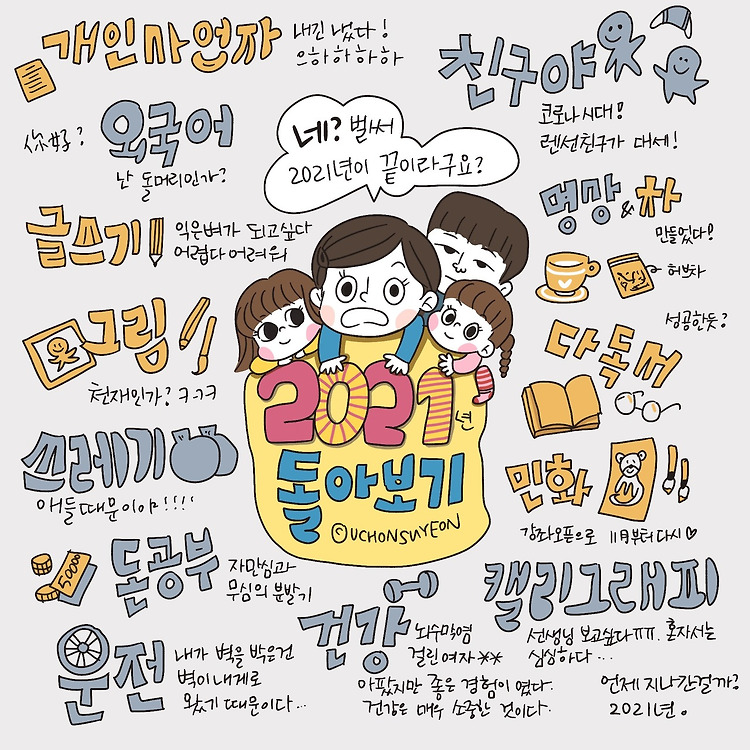 개인사업자
내긴 냈다!
으하하하하
친구야
코로나시대!
렌선친구가 대세!
你好?
외국어
난 돌머리인가?
네? 벌써
2021년이 끝이라구요?
글쓰기
익은벼가 되고싶다
어렵다어려워
명상&차
만들었다!
허브차
그림
천재인가? ㅋㄱㅋ
성공한듯?
다독서
쓰레기
애들때문이야!!!!
2021년
돌아보기
©UCHONSUYEON
민화
강좌오픈으로 11月부터다시♡
50000
돈공부
자만심과
무심의 분발기
건강
뇌수막염
걸린여자**
아팠지만 좋은 경험이 였다.
건강은 매우 소중한 것이다.
캘리그래피
선생님 보고싶다ㅠㅠ. 혼자서는
심심하다...
운전
내가 벽을 박은건
벽이 내게로
왔기 때문이다...
언제지나간걸까?
2021년.